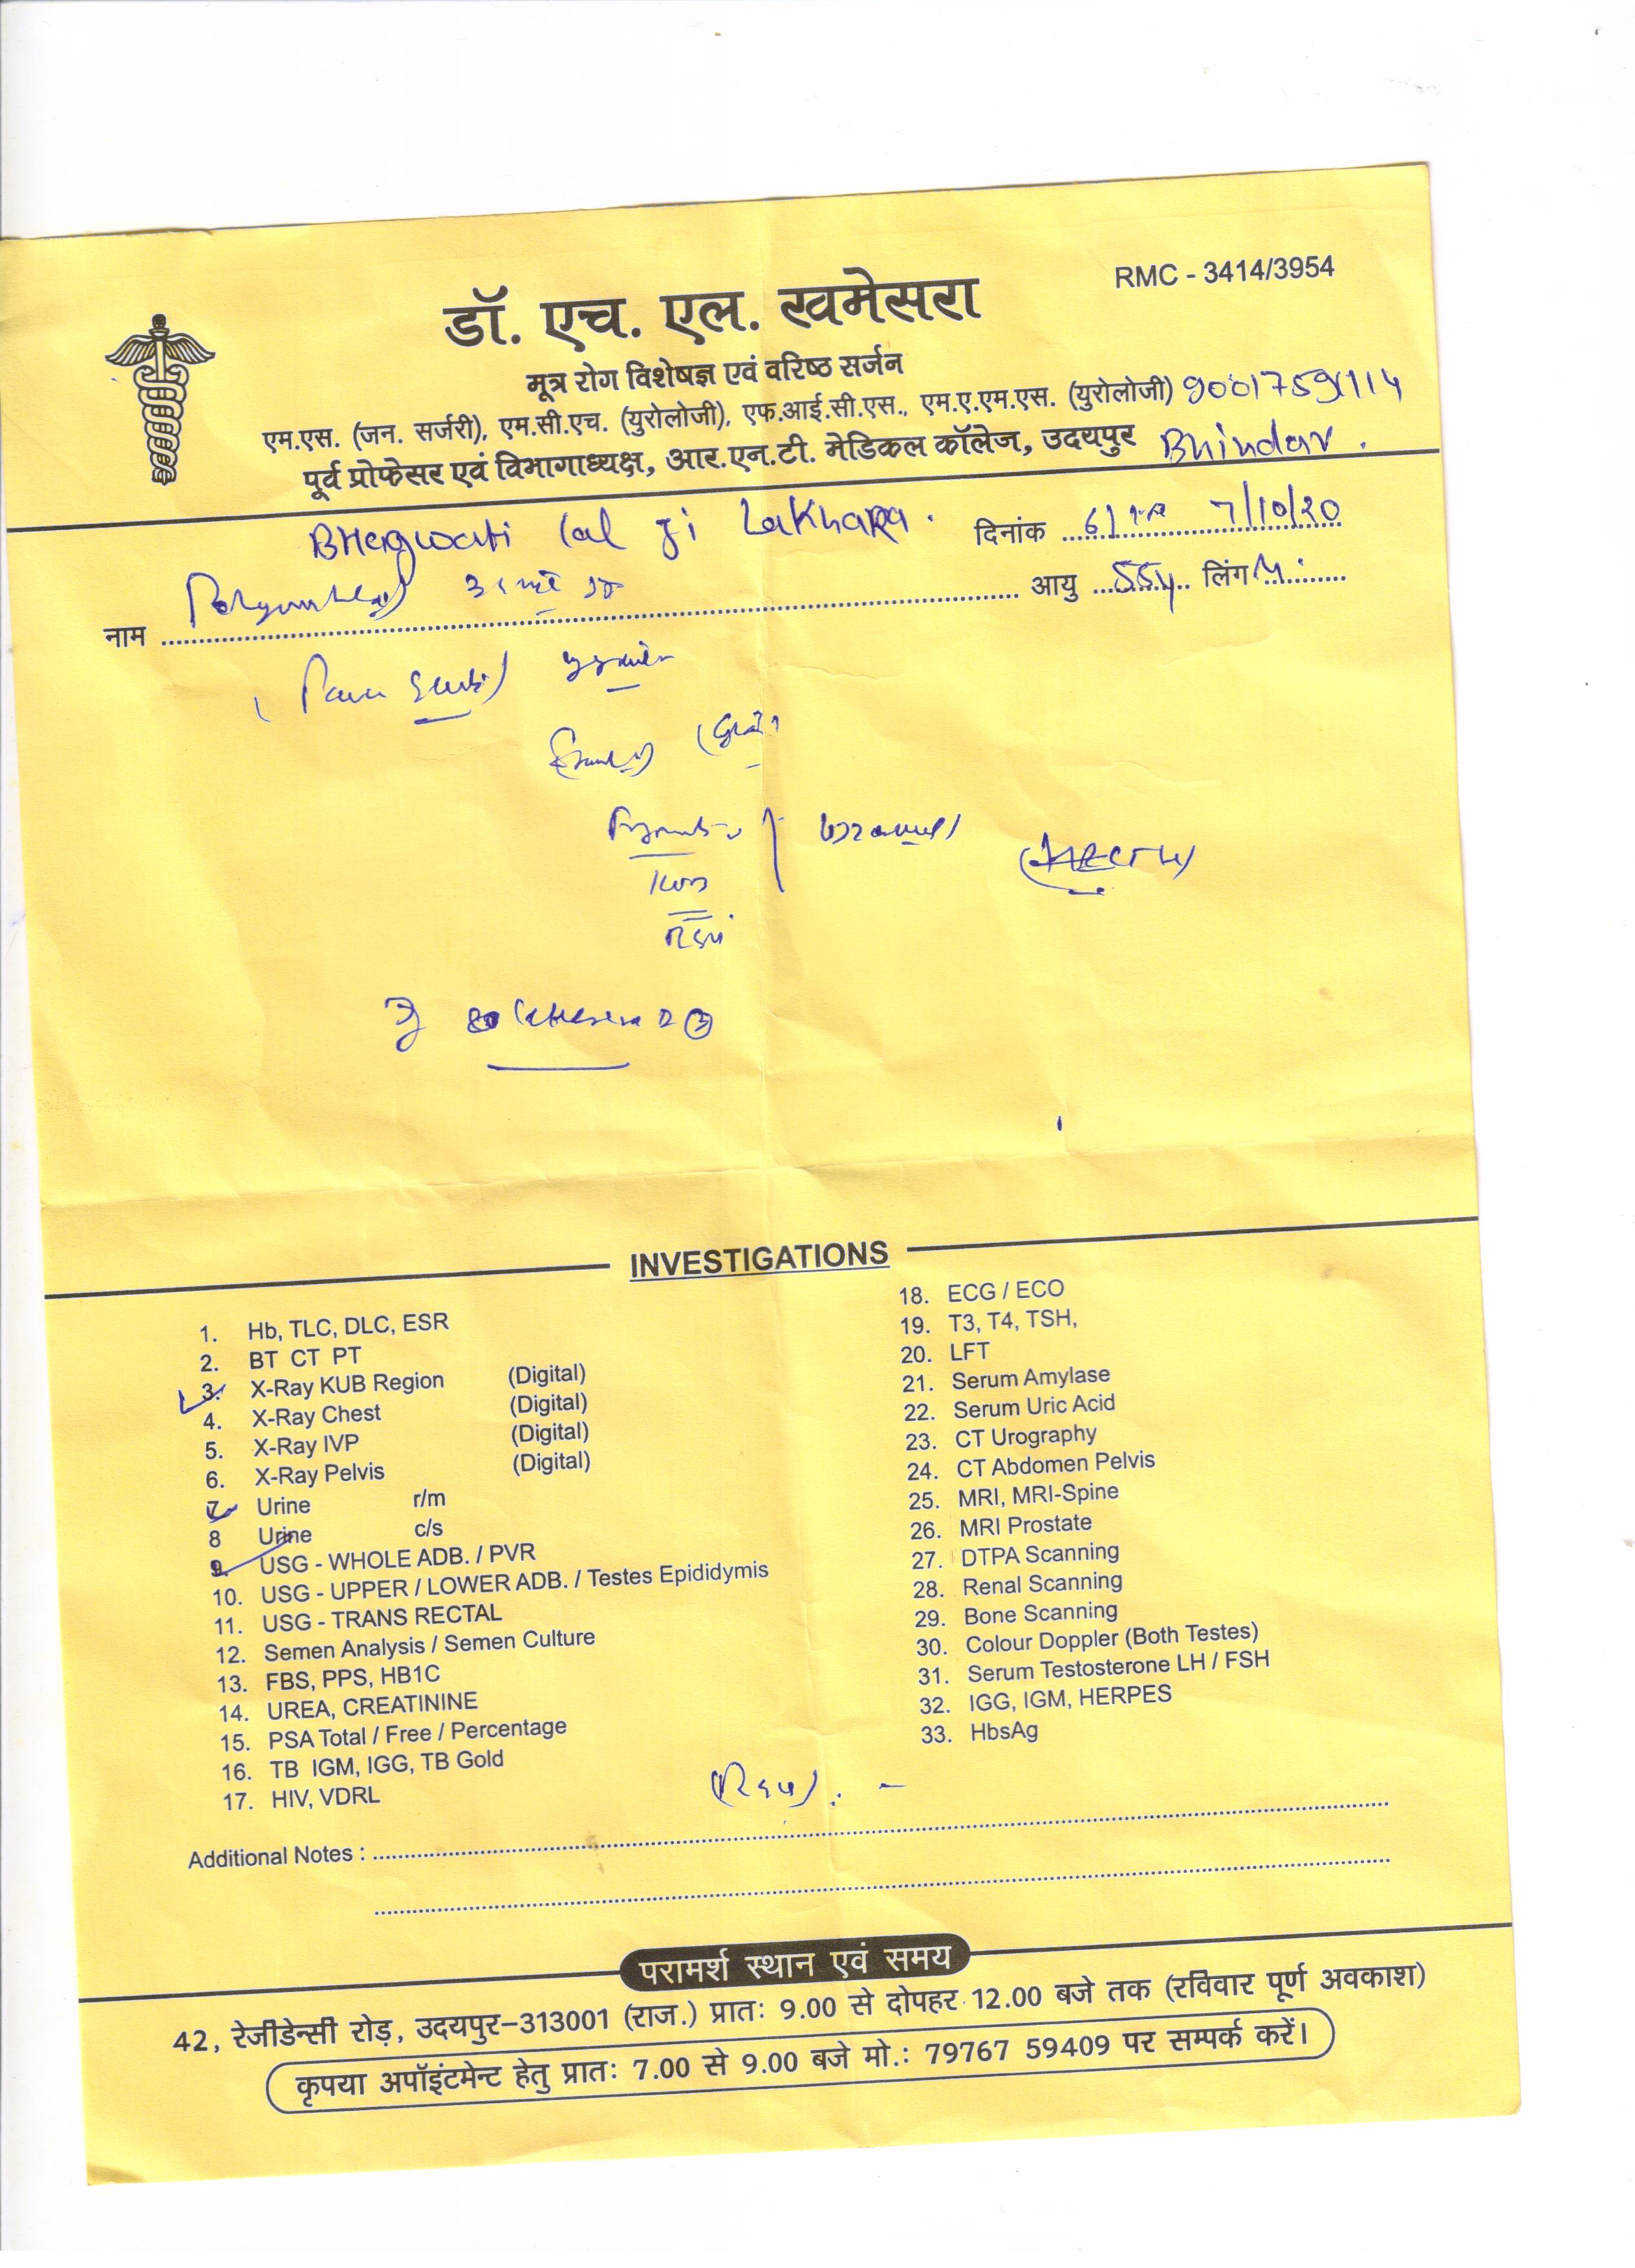 RMC - 3414/3954
डॉ. एच. एल. खमेसरा
मूत्र रोग विशेषज्ञ एवं वरिष्ठ सर्जन
एम.एस. (जन. सर्जरी), एम.सी.एच. (युरोलोजी), एफ.आई.सी.एस., एम.ए.एम.एस. (युरोलोजी)
पूर्व प्रोफेसर एवं विभागाध्यक्ष, आर.एन.टी. मेडिकल कॉलेज, उदयपुर Bhindar.
Bhagwati lal ji Lakhara. दिनांक 7/10/20
नाम आयु 55y लिंग M
INVESTIGATIONS
1. Hb, TLC, DLC, ESR
2. BT CT PT
3. X-Ray KUB Region (Digital)
4. X-Ray Chest (Digital)
5. X-Ray IVP (Digital)
6. X-Ray Pelvis (Digital)
7. Urine r/m
8 Urine c/s
9. USG - WHOLE ADB. / PVR
10. USG - UPPER / LOWER ADB. / Testes Epididymis
11. USG - TRANS RECTAL
12. Semen Analysis / Semen Culture
13. FBS, PPS, HB1C
14. UREA, CREATININE
15. PSA Total / Free / Percentage
16. TB IGM, IGG, TB Gold
17. HIV, VDRL
18. ECG / ECO
19. T3, T4, TSH,
20. LFT
21. Serum Amylase
22. Serum Uric Acid
23. CT Urography
24. CT Abdomen Pelvis
25. MRI, MRI-Spine
26. MRI Prostate
27. DTPA Scanning
28. Renal Scanning
29. Bone Scanning
30. Colour Doppler (Both Testes)
31. Serum Testosterone LH / FSH
32. IGG, IGM, HERPES
33. HbsAg
Additional Notes :
परामर्श स्थान एवं समय
42, रेजीडेन्सी रोड़, उदयपुर-313001 (राज.) प्रातः 9.00 से दोपहर 12.00 बजे तक (रविवार पूर्ण अवकाश)
कृपया अपॉइंटमेन्ट हेतु प्रातः 7.00 से 9.00 बजे मो.: 79767 59409 पर सम्पर्क करें।